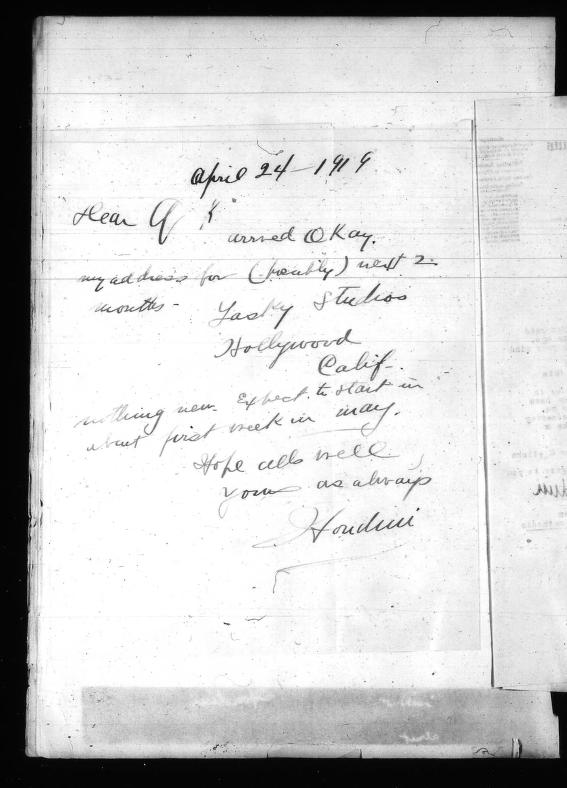 April 24 - 1919
Dear Q K
arrived O Kay.
my address for (possibly) next 2
months -
Lasky Studios
Hollywood
Calif.
nothing new. Expect to start in
about first week in may.
Hope alls well
yours as always
Houdini